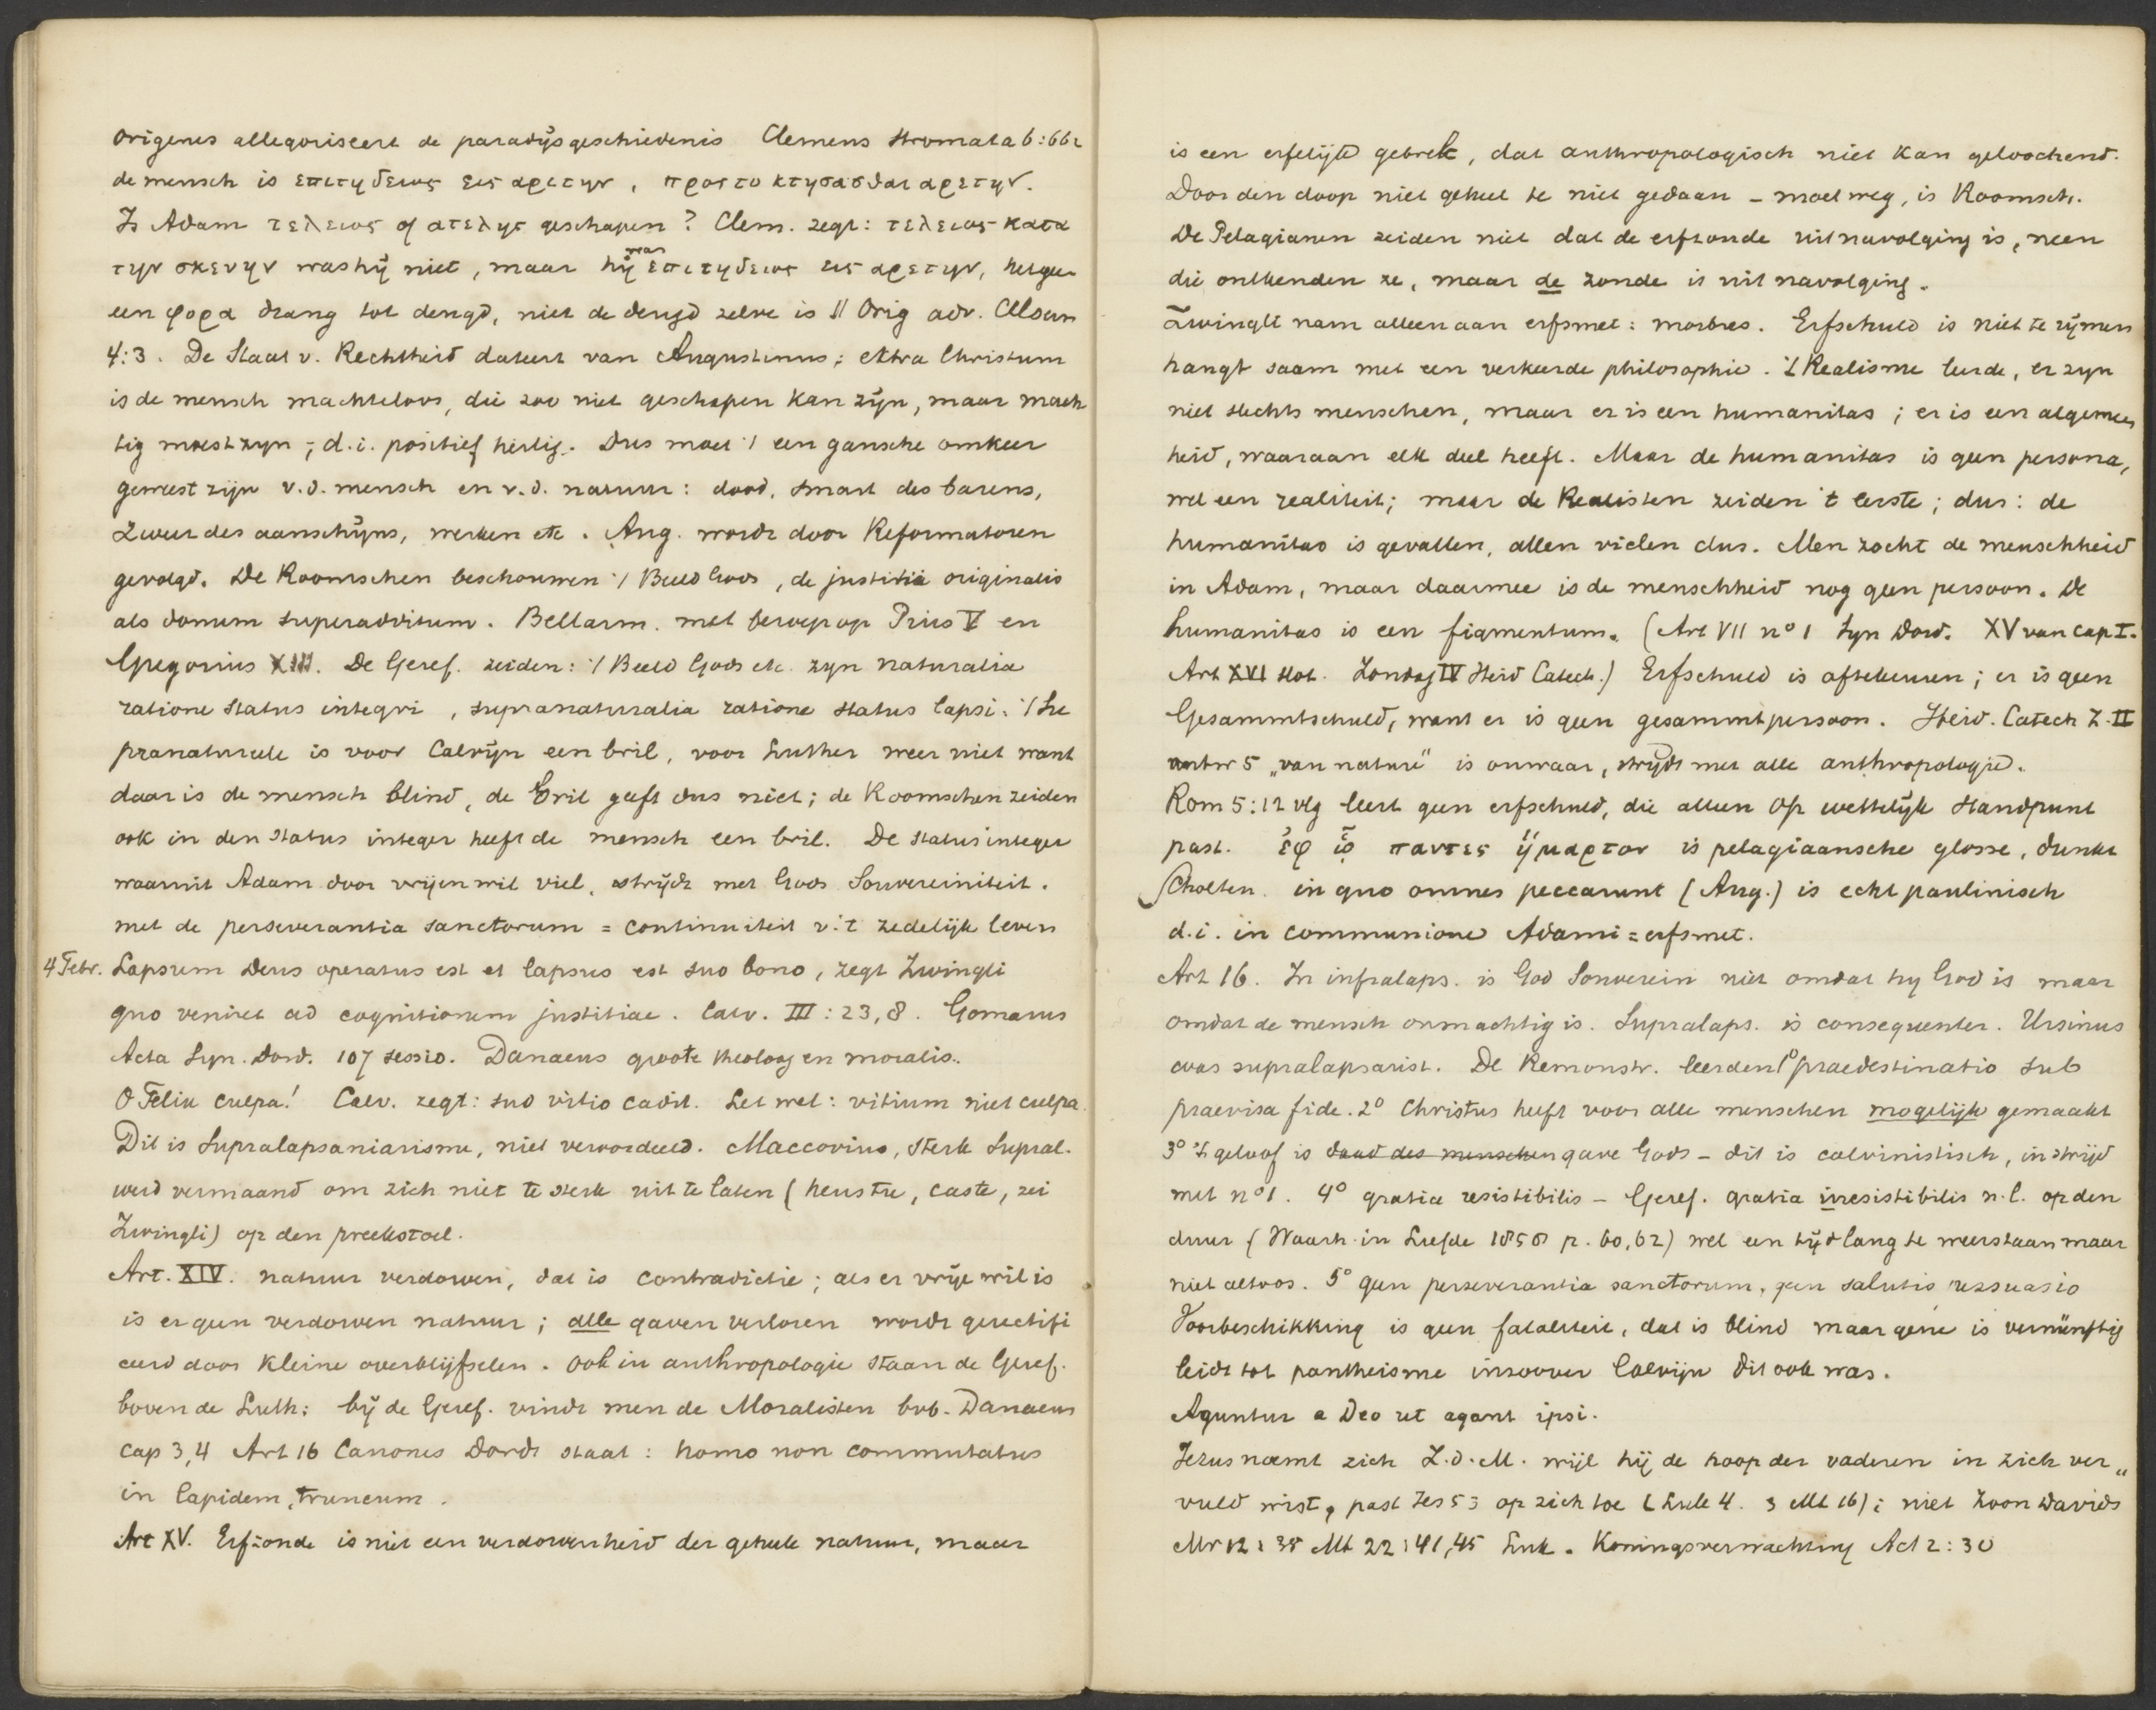 Origenes allegoriseert de paradijsgeschiedenis Clemens Stromata 6:662
de mensch is επιτηδειος εις αρετην, προς το κτησασθαι αρετην.
Is Adam τελειος of ατελης geschapen? Clem. zegt: τελειος κατα
την σκευην was hij niet, maar hij was επιτηδειος εις αρετην, hetgeen
een φορα drang tot deugd, niet de deugd zelve is || Orig adv. Celsum
4:3. De Staat v. Rechtheid dateert van Augustinus; extra Christum
is de mensch machteloos, die zoo niet geschapen kan zijn, maar mach
tig moest zyn; d.i. positief heilig. Dus moet 't een gansche omkeer
geweest zijn v.d. mensch en v.d. natuur: dood, smart des barens,
zweet des aanschijns, werken etc. Aug. wordt door Reformatoren
gevolgd. De Roomschen beschouwen 't Beeld Gods, de justitia originalis
als donum superadditum. Bellarm. met beroep op Pius V en
Gregorius XIII. De Geref. zeiden: 't Beeld Gods etc. zyn naturalia
ratione status integri, supranaturalia ratione status lapsi. 't Su
pranatureele is voor Calvijn een bril, voor Luther weer niet want
daar is de mensch blind, de bril geeft dus niet; de Roomschen zeiden
ook in den status integer heeft de mensch een bril. De status integer
waaruit Adam door vrijen wil viel, strijdt met Gods Souvereiniteit.
met de perseverantia sanctorum = continuiteit v. 't zedelijk leven
4 Febr. Lapsum Deus operatus est et lapsus est suo bono, zegt Zwingli
quo veniret ad cognitionem justitiae. Calv. III:23,8. Gomarus
Acta Syn. Dord. 107 sessio. Danaeus groote theoloog en moralis.
O Felix culpa! Calv. zegt: suo vitio cadit. Let wel: vitium niet culpa.
Dit is Supralapsaniarisme, niet veroordeeld. Maccovius, sterk Supral.
werd vermaand om zich niet te sterk uit te laten (heus tu, caste, zei
Zwingli) op den preekstoel.
Art. XIV. natuur verdorven, dat is contradictie; als er vrije wil is
is er geen verdorven natuur; alle gaven verloren wordt gerectifi
ceerd door kleine overblijfselen. Ook in anthropologie staan de Geref.
boven de Luth: bij de Geref. vindt men de Moralisten bvb. Danaeus
cap 3,4 Art 16 Canones Dordt staat: homo non commutatus
in lapidem, truncum.
Art XV. Erfzonde is niet een verdorvenheid der geheele natuur, maar
is een erfelijk gebrek, dat anthropologisch niet kan geloochend.
Door den doop niet geheel te niet gedaan - moet weg, is Roomsch.
De Pelagianen zeiden niet dat de erfzonde uit navolging is, neen
die ontkenden ze, maar de zonde is uit navolging.
Zwingli nam alleen aan erfsmet: morbus. Erfschuld is niet te rijmen
hangt saam met een verkeerde philosophie. 't Realisme leerde, er zyn
niet slechts menschen, maar er is een humanitas; er is een algemeen
heid, waaraan elk deel heeft. Maar de humanitas is geen persona,
wel een realiteit; maar de Realisten zeiden 't eerste; dus: de
humanitas is gevallen, allen vielen dus. Men zocht de menschheid
in Adam, maar daarmee is de menschheid nog geen persoon. De
humanitas is een figmentum. (Art VII no 1 Syn Dord. XV van Cap I.
Art XVI slot. Zondag IV Heid Catech.) Erfschuld is aftekeuren; er is geen
Gesammtschuld, want er is geen gesammtpersoon. Heid. Catech Z. II
antw 5 „van nature" is onwaar, strijdt met alle anthropologie.
Rom 5:12 vlg leert geen erfschuld, die alleen op wettelijk standpunt
past. ἐφ ᾧ παντες ἥμαρτον is pelagiaansche glosse, dunkt
Scholten. in quo omnes peccarunt (Aug.) is echt paulinisch
d.i. in communione Adami = erfsmet.
Art 16. In infralaps. is God Souverein niet omdat hy God is maar
omdat de mensch onmachtig is. Supralaps. is consequenter. Ursinus
was supralapsarist. De Remonstr. leerden 1o praedestinatio sub
praevisa fide. 2o Christus heeft voor alle menschen mogelijk gemaakt
3o 't geloof is daad des menschen gave Gods - dit is calvinistisch, in strijd
met no 1. 4o gratia resistibilis - Geref. gratia irresistibilis n.l. op den
duur (Waarh. in Liefde 1858 p. 60,62) wel een tijd lang te weerstaan maar
niet altoos. 5o geen perseverantia sanctorum, geen salutis persuasio
Voorbeschikking is geen fataliteit, dat is blind maar gene is vernünftig
leidt tot pantheisme inzoover Calvijn dit ook was.
Aguntur a Deo ut agant ipsi.
Jezus noemt zich Z.d.M. wijl hij de hoop der vaderen in zich ver„
vuld wist, past Jes 53 op zich toe (Luk 4. 3 Mt 16); niet Zoon Davids
Mr 12:35 Mt 22:41,45 Luk. Koningsverwachting Act 2:30